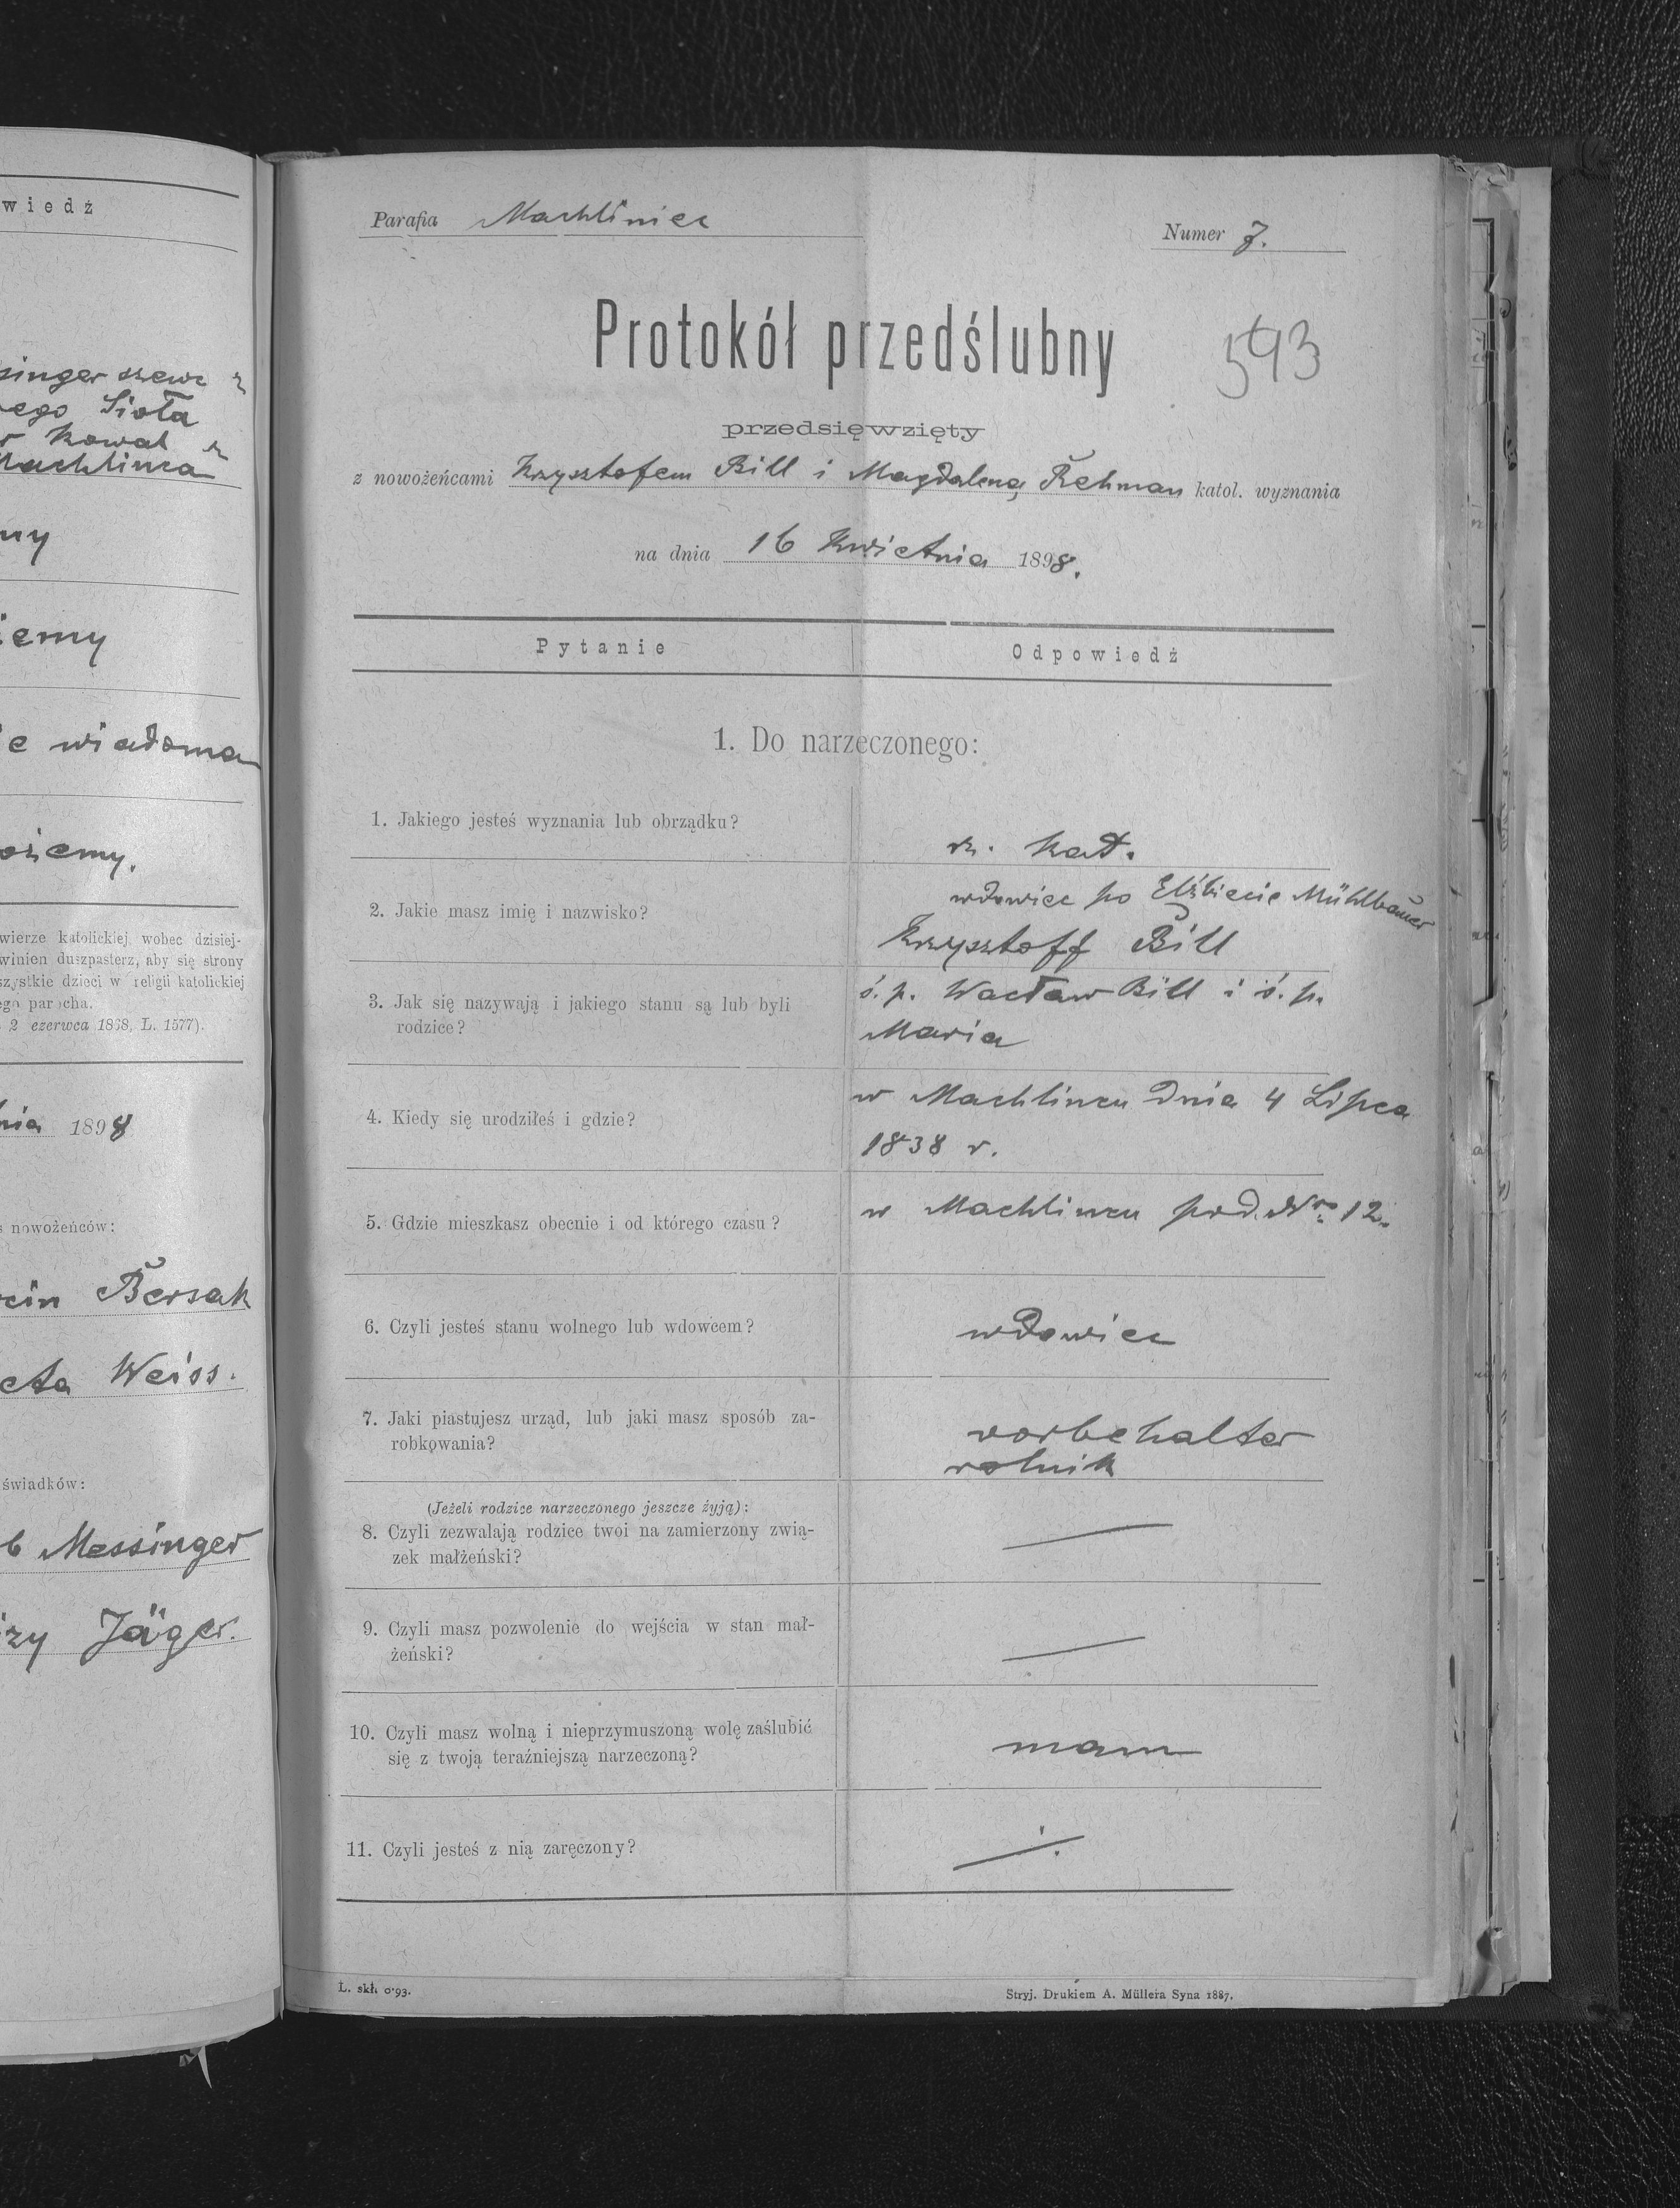 wiedź
singer szewc
ego Sioła
r kowal
Machlińca
my
iemy
ie wiadoma
ożemy.
wierze katolickiej wobec dzisiej-
winien duszpasterz, aby się strony
szystkie dzieci w religii katolickiej
ego parocha.
2 czerwca 1868, L. 1577).
nia 1898
s nowożeńców:
rcin Bersak
eta Weiss.
świadków:
b Messinger
rzy Jäger.
Parafia Machliniec
Numer 7.
Protokół przedślubny
593
przedsięwzięty
z nowożeńcami Krzysztofem Bill i Magdaleną Rehman katol. wyznania
na dnia 16 Kwietnia 1898.
Pytanie
Odpowiedź
1. Do narzeczonego:
1. Jakiego jesteś wyznania lub obrządku?
rz. kat.
2. Jakie masz imię i nazwisko?
wdowiec po Elżbiecie Mühlbauer
Krzysztoff Bill
3. Jak się nazywają i jakiego stanu są lub byli
rodzice?
ś. p. Wacław Bill i ś. p.
Maria
4. Kiedy się urodziłeś i gdzie?
w Machlińcu dnia 4 Lipca
1838 r.
5. Gdzie mieszkasz obecnie i od którego czasu?
w Machlińcu pod Nro 12.
6. Czyli jesteś stanu wolnego lub wdowcem?
wdowiec
7. Jaki piastujesz urząd, lub jaki masz sposób za-
robkowania?
vorbehalter
rolnik
(Jeżeli rodzice narzeczonego jeszcze żyją):
8. Czyli zezwalają rodzice twoi na zamierzony zwią-
zek małżeński?
9. Czyli masz pozwolenie do wejścia w stan mał-
żeński?
10. Czyli masz wolną i nieprzymuszoną wolę zaślubić
się z twoją teraźniejszą narzeczoną?
mam
11. Czyli jesteś z nią zaręczony?
L. skł. 0·93.
Stryj. Drukiem A. Müllera Syna 1887.